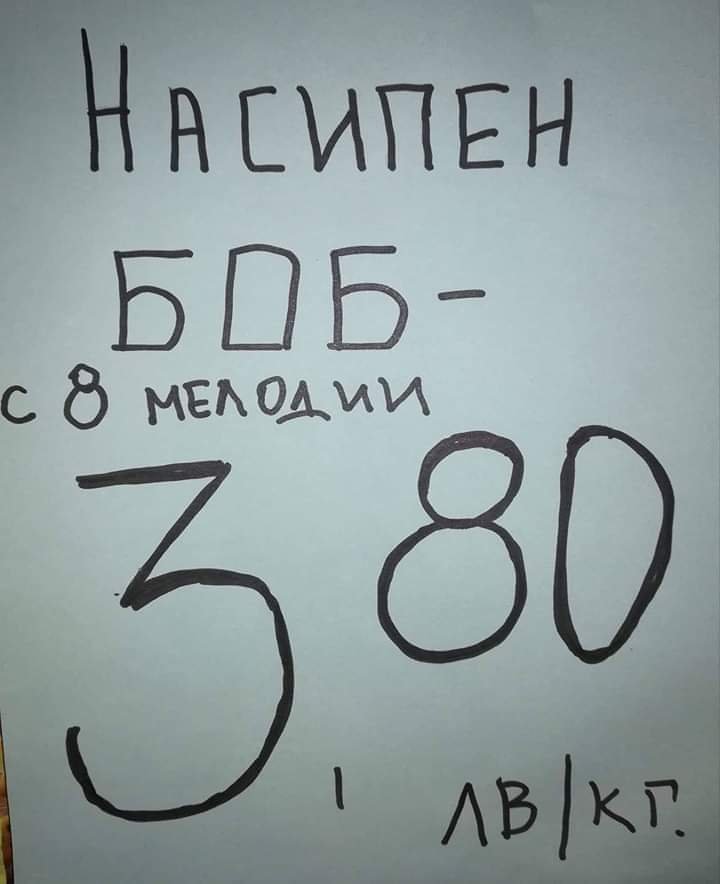 НАСИПЕН
БОБ-
С 8 МЕЛОДИИ
3,80
ЛВ/КГ.